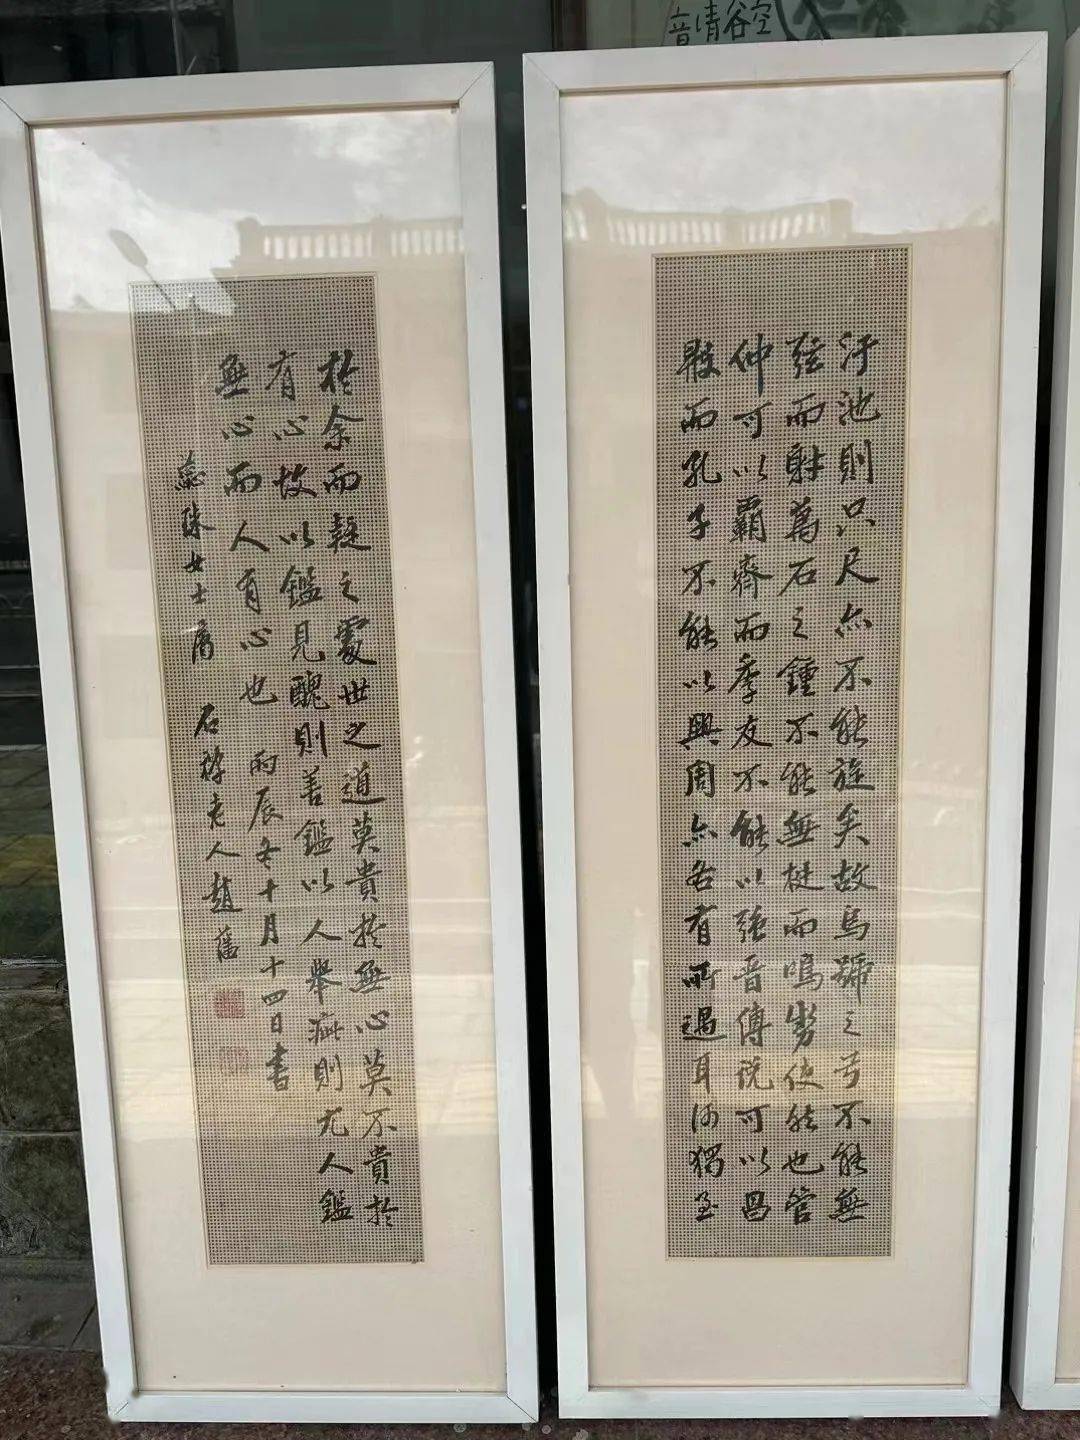 空谷清音
汙池則只尺亦不能旋矣故烏號之弓不能無
弦而射萬石之鍾不能無梃而鳴勢使然也管
仲可以霸齊而季友不能以強晉傅說可以昌
殷而孔子不能以興周亦各有所遇耳何獨至
於余而疑之處世之道莫貴於無心莫不貴於
有心故以鑑見醜則善鑑以人舉疵則尤人鑑
無心而人有心也 丙辰冬十月十四日書
珠女士屬 石禪老人趙藩